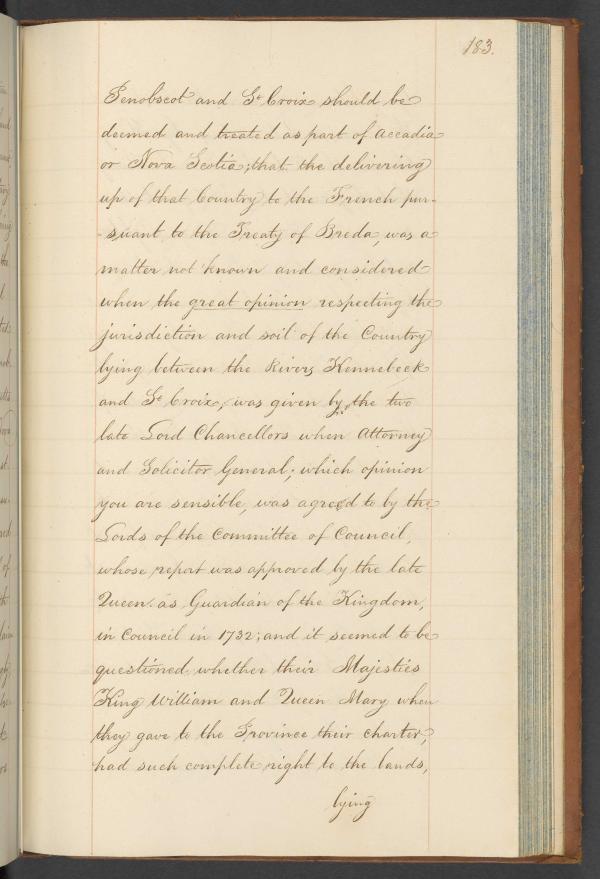 183.
Penobscot and St Croix should be
deemed and treated as part of accadia
or Nova Scotia; that the delivering
up of that Country to the French pur-
-suant to the Treaty of Breda, was a
matter not known and considered
when the great opinion respecting the
jurisdiction and soil of the Country
lying between the Rivers Kennebeck
and St Croix, was given by the two
late Lord Chancellors when Attorney
and Solicitor General; which opinion
you are sensible, was agreed to by the
Lords of the Committee of Council,
whose report was approved by the late
Queen as Guardian of the Kingdom,
in Council in 1732; and it seemed to be
questioned whether their Majesties
King William and Queen Mary when
they gave to the Province their charter,
had such complete right to the lands,
lying